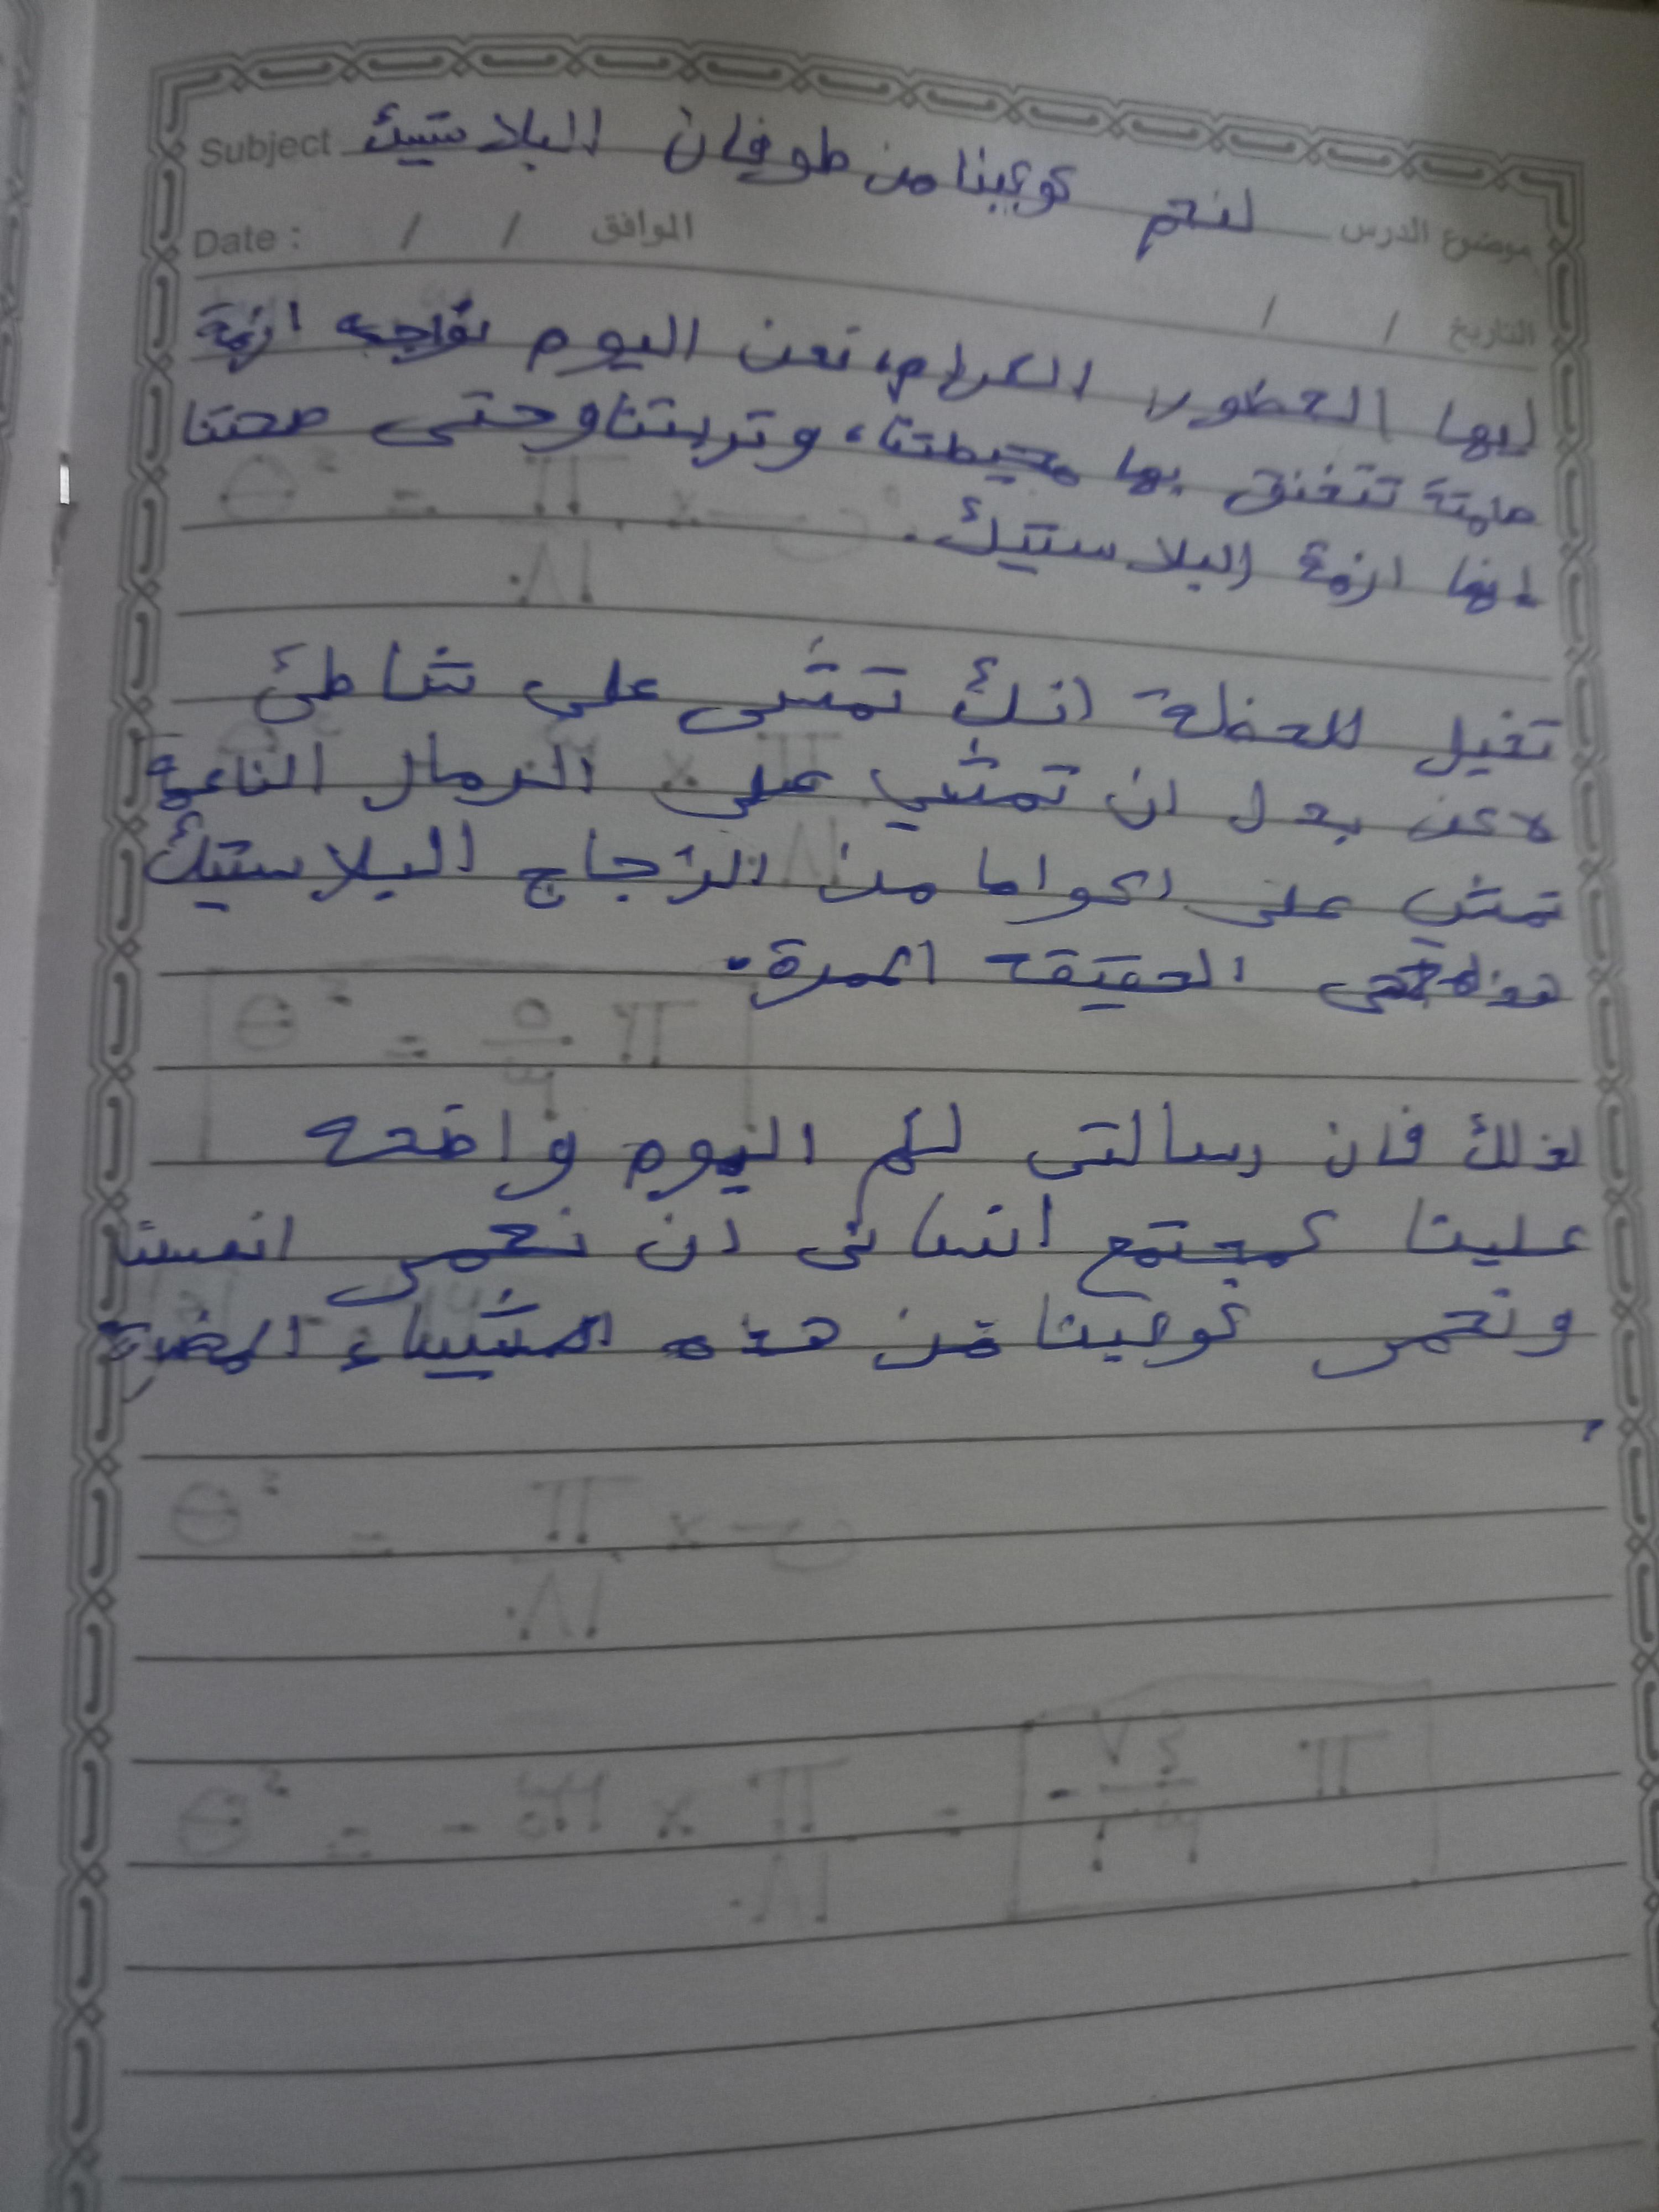 Subject لنحم كوكبنا من طوفان البلاستيك موضوع الدرس
Date : / / الموافق / / التاريخ
ايها الحظور الكرام، نحن اليوم نواجه ازمة
صامتة تختنق بها محيطتنا، وتربتنا وحتى صحتنا
انها ازمة البلاستيك.
تخيل للحظة انك تمشى على شاطئ
لاكن بدل ان تمشي على الرمال الناعمة
تمشي على اكواما من الزجاج البلاستيك
هذه هي الحقيقة المرة.
لذلك فان رسالتى لكم اليوم واضحه
علينا كمجتمع انسانى ان نحمى انفسنا
ونحمى كوكبنا من هذه الاشياء المضرة
.